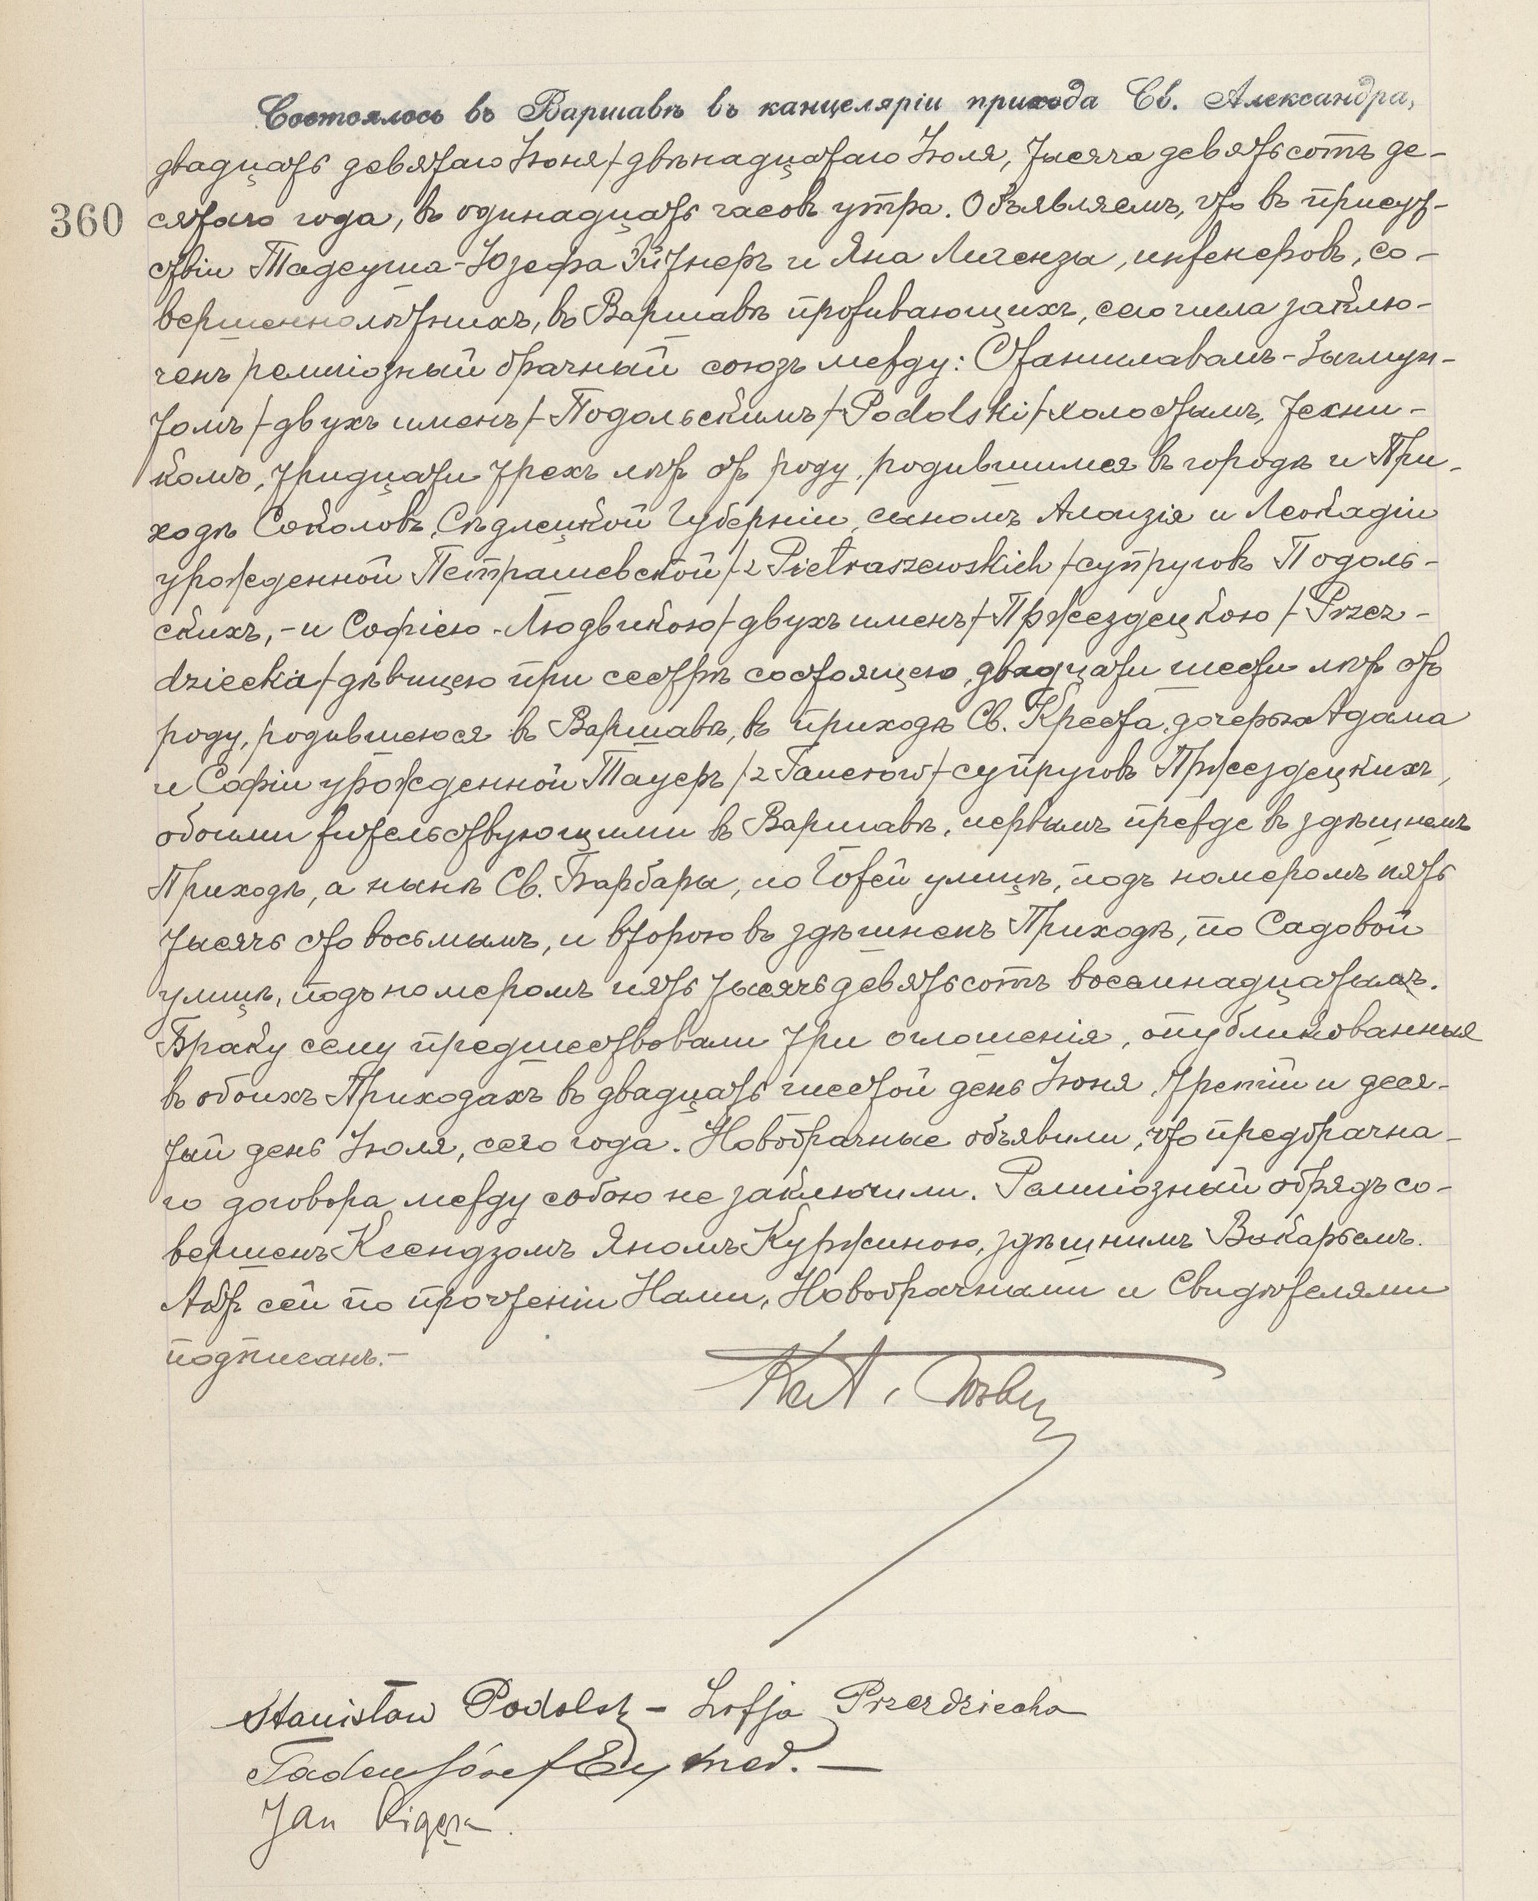 Состоялось въ Варшавѣ въ канцеляріи прихода Св. Александра,
двадцать девятаго Іюня /двѣнадцатаго Іюля, тысяча девятьсотъ де-
360 сятаго года, въ одинадцать часовъ утра. Объявляемъ, что въ присут-
ствіи Тадеуша-Юзефа и Яна Лигензы, инженеровъ, со-
вершеннолѣтнихъ, въ Варшавѣ проживающихъ, сего числа заклю-
ченъ религіозный брачный союзъ между: Станиславомъ-Зыгмун-
томъ /двухъ именъ/ Подольскимъ /Podolski/ холостымъ, техни-
комъ, тридцати трехъ лѣтъ отъ роду, родившимся въ городѣ и При-
ходѣ Соколовъ, Сѣдлецкой Губерніи, сыномъ Алоизія и Леокадіи
урожденной Петрашевской /z Pietraszewskich/ супруговъ Подоль-
скихъ, - и Софіею-Людвикою /двухъ именъ/ Пржездецкою /Przez-
dziecka/ дѣвицею при сестрѣ состоящею, двадцати шести лѣтъ отъ
роду, родившеюся въ Варшавѣ, въ приходѣ Св. Креста, дочерью Адама
и Софіи урожденной Тауеръ /z Tauerów/ супруговъ Пржездецкихъ,
обоими жительствующими въ Варшавѣ, первымъ прежде въ здѣшнемъ
Приходѣ, а нынѣ Св. Барбары, по Гожей улицѣ, подъ номеромъ пять
тысячъ сто восьмымъ, и второю въ здѣшнемъ Приходѣ, по Садовой
улицѣ, подъ номеромъ пять тысячъ девятьсотъ восемнадцатымъ.
Браку сему предшествовали три оглашенія, опубликованныя
въ обоихъ Приходахъ въ двадцать шестой день Іюня, третій и деся-
тый день Іюля, сего года. Новобрачные объявили, что предбрачна-
го договора между собою не заключили. Религіозный обрядъ со-
вершенъ Ксендзомъ Яномъ Куржиною, здѣшнимъ Викаріемъ.
Актъ сей по прочтеніи Нами, Новобрачными и Свидѣтелями
подписанъ.-
Stanisław Podolski - Zofja Przezdziecka
Tadeusz Józef
Jan Ligęza